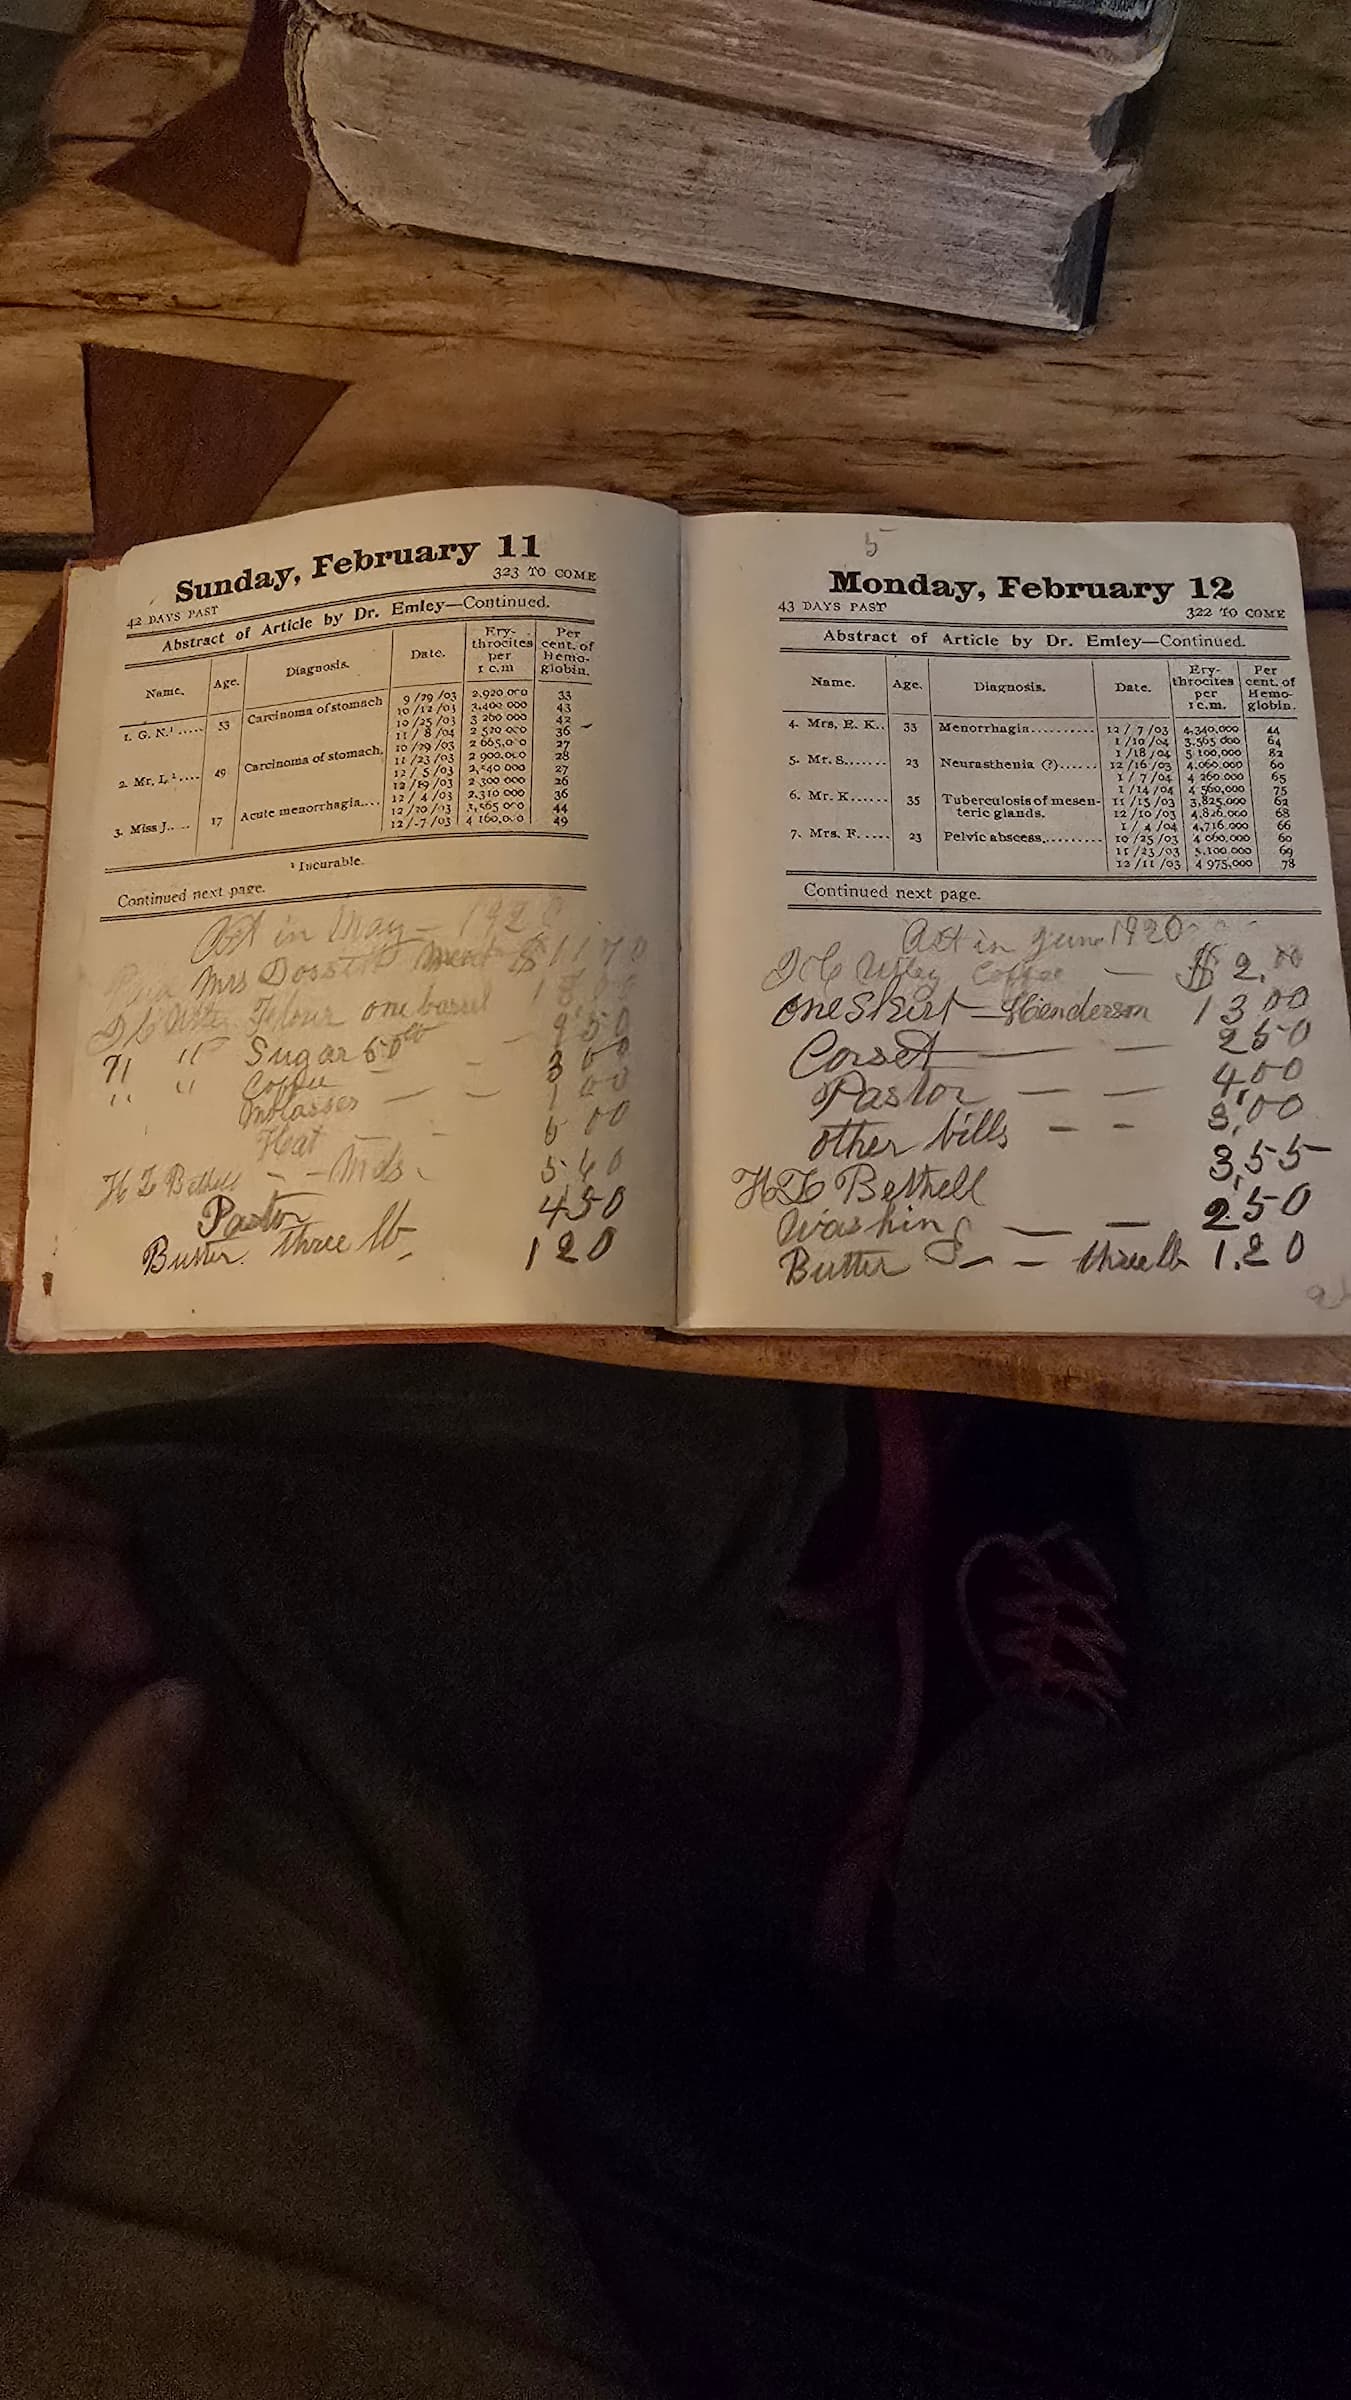 Sunday, February 11
42 DAYS PAST 323 TO COME
Abstract of Article by Dr. Emley—Continued.
Name. Age. Diagnosis. Date. Ery-throcites per 1 c.m Per cent. of Hemo-globin.
1. G. N.¹ ..... 53 Carcinoma of stomach 9/29/03 2,920 000 33
10/12/03 3,400 000 43
10/25/03 3 260 000 42
11/8/04 2 520 000 36
2. Mr. L.¹.... 49 Carcinoma of stomach. 10/29/03 2 665,000 27
11/23/03 2 900,000 28
12/5/03 2,540 000 27
12/19/03 2 300 000 26
3. Miss J..... 17 Acute menorrhagia.... 12/4/03 2,310 000 36
12/20/03 3,565 000 44
12/-7/03 4 160,000 49
¹ Incurable.
Continued next page.
Act in May — 1920
Mrs Meat $ 11 70
Flour one barrel
" " Sugar 50lb - 9 50
" " Coffee - 3 00
Molasses — — 1 00
— - 6 00
Bethell - - Mds. 5 60
Pastor 4 50
Butter three lb 1 20
5
Monday, February 12
43 DAYS PAST 322 TO COME
Abstract of Article by Dr. Emley—Continued.
Name. Age. Diagnosis. Date. Ery-throcites per 1 c.m. Per cent. of Hemo-globin.
4. Mrs. E. K.. 33 Menorrhagia.......... 12/7/03 4,340,000 44
1/10/04 3,565 000 64
1/18/04 5 100,000 82
5. Mr. S....... 23 Neurasthenia (?)...... 12/16/03 4,060,000 60
1/7/04 4 260 000 65
1/14/04 4 560,000 75
6. Mr. K...... 35 Tuberculosis of mesen-teric glands. 11/15/03 3,825,000 62
12/10/03 4,826,000 68
1/4/04 4,716,000 66
7. Mrs. F..... 23 Pelvic abscess.......... 10/25/03 4 060,000 60
11/23/03 5,100 000 69
12/11/03 4 975,000 78
Continued next page.
Act in June 1920
Coffee — $ 2.00
one Skirt — Henderson 13 00
Corset — — 2 50
Pastor — — 4,00
other bills - - 3,00
Bethell 3,55
Washing — — 2.50
Butter - - three lb 1.20